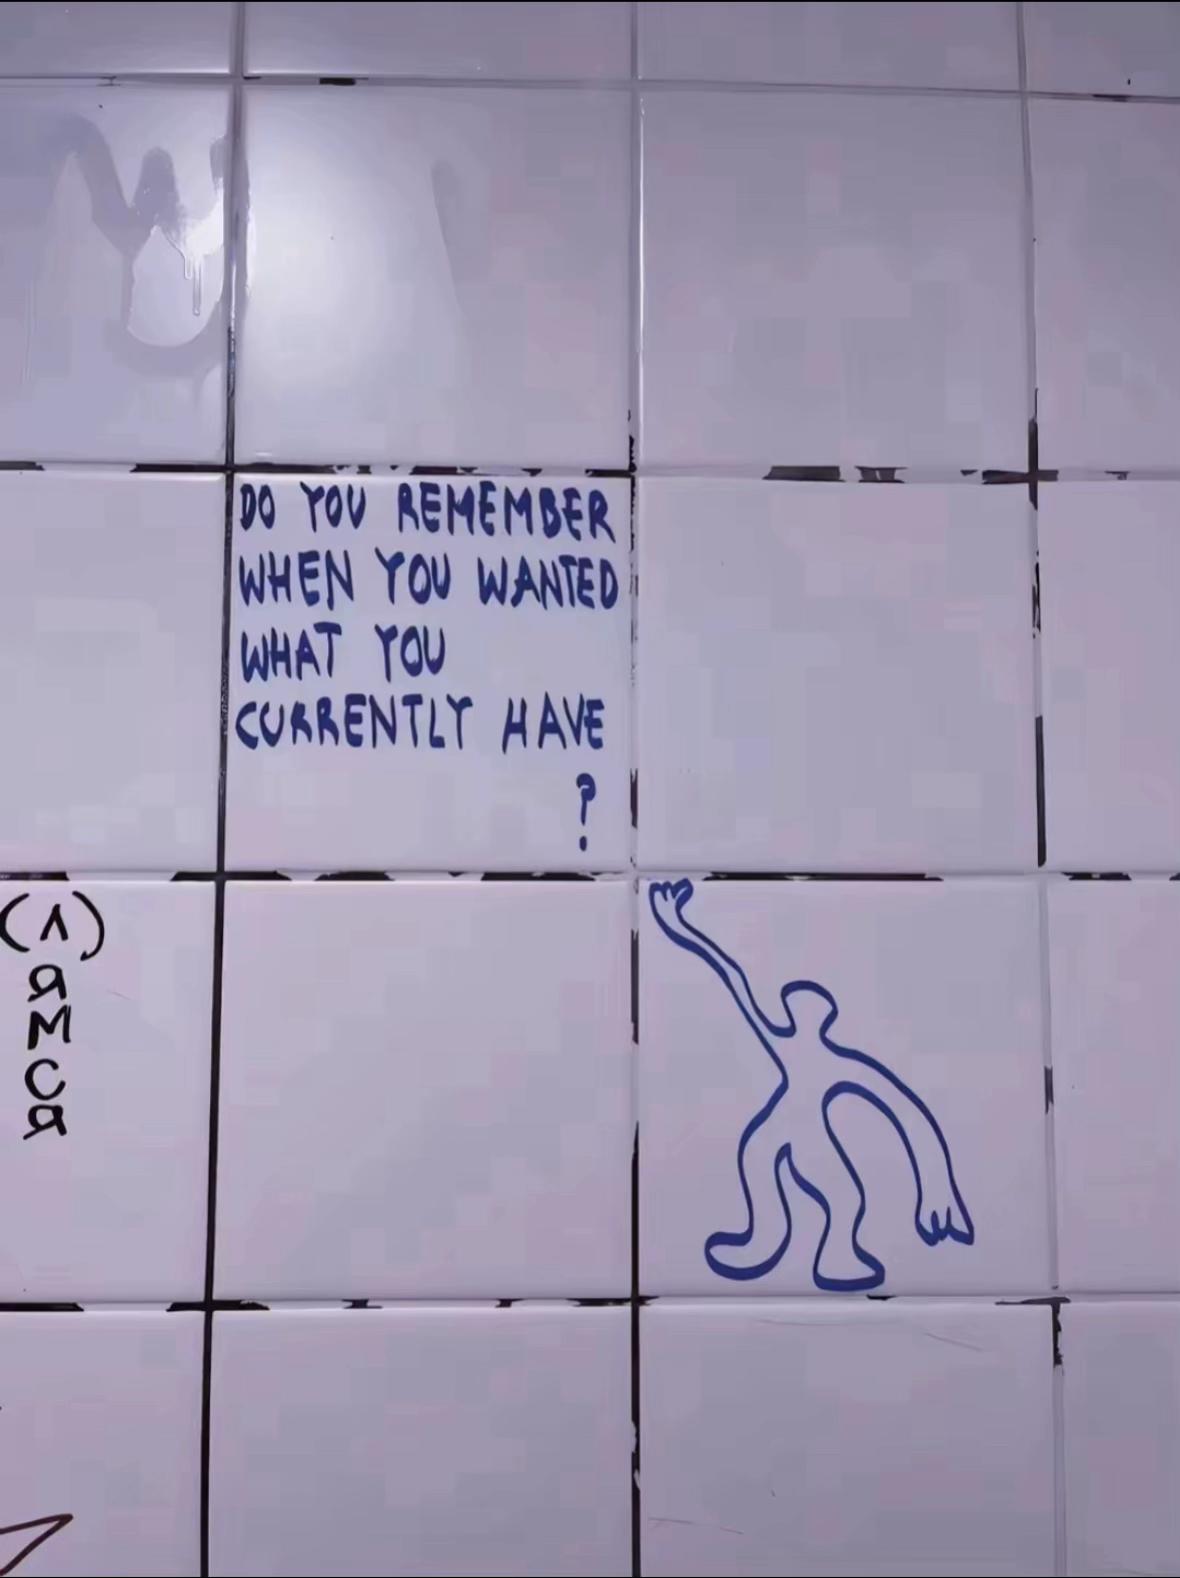 DO YOU REMEMBER
WHEN YOU WANTED
WHAT YOU
CURRENTLY HAVE
?
(Л)
Я
М
С
Я